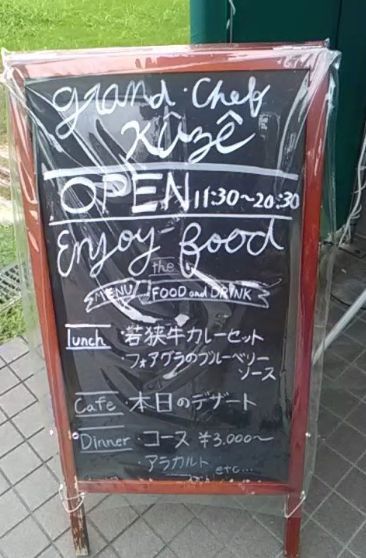 grand・chef
Kûzê
OPEN 11:30〜20:30
Enjoy food
the
MENU FOOD and DRINK
lunch ・若狭牛カレーセット
・フォアグラのブルーベリー
ソース
Cafe ・本日のデザート
Dinner ・コース ¥3.000〜
・アラカルト etc...